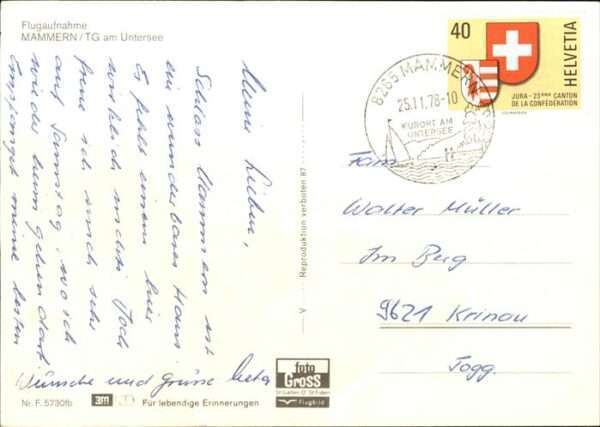 Flugaufnahme
MAMMERN/TG am Untersee
Meine Lieben,
Schloss Mammern ist
ein wunderbares Haus
Es fehlt einem hier
wirklich nichts. Doch
freue ich mich sehr
auf Samstag, wo ich
wieder heim gehen darf
Empfanget meine besten
Wünsche und Grüsse Meta
Nr. F. 5730fb
3M
Für lebendige Erinnerungen
V
Reproduktion verboten 87
foto
Gross
St. Gallen O' St. Fiden
Flugbild
40
HELVETIA
JURA - 23ème CANTON
DE LA CONFÉDÉRATION
8265 MAMMERN
25.11.78-10
KURORT AM
UNTERSEE
Fam.
Walter Müller
Im Berg
9621 Krinau
Togg.